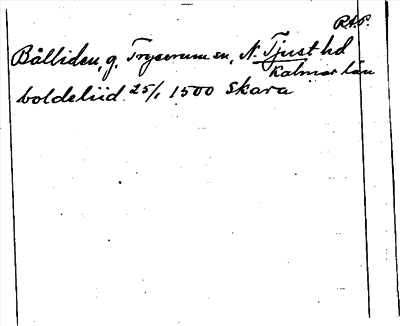 R.A.P.
Bålliden, g. Tryserum sn, N. Tjust hd
Kalmar län
boldeliid 25/1 1500 Skara